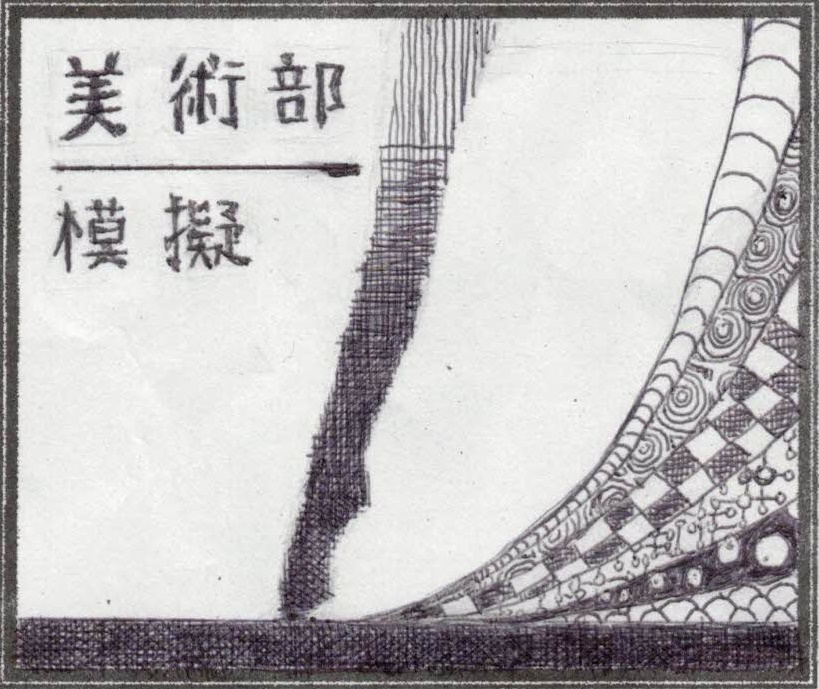 美術部
模擬